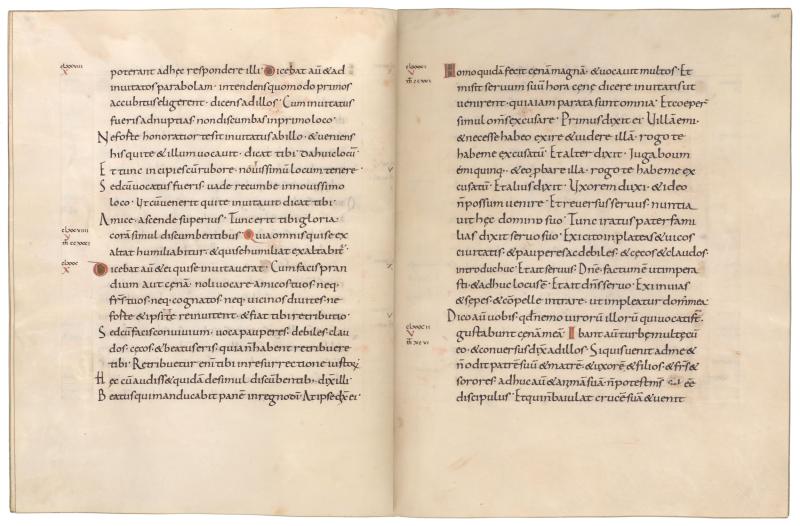 clxxxviii
X
poterant adhęc respondere illi· Dicebat aũ &ad
inuitatos parabolam· intendens quomodo primos
accubitus eligerent· dicens adillos· Cum inuitatus
fueris adnuptias· non discumbas in primo loco·
Ne forte honoratior te sit inuitatus abillo· & ueniens
his qui te & illum uocauit· dicat tibi· da huic locũ·
Et tunc incipies cũ rubore· nouissimũ locum tenere·
Sed cũ uocatus fueris· uade recumbe in nouissimo
loco· Ut cũ uenerit qui te inuitauit dicat tibi·
Amice· ascende superius· Tunc erit tibi gloria·
clxxxviiii
V
corã simul discumbentibus· Quia omnis qui se ex
altat humiliabitur· & qui se humiliat exaltabit̃·
clxxx
X
Dicebat aũ & ei qui se inuitauerat· Cum facis pran
dium aut cęnã· noli uocare amicos tuos· neq·
fr̃s tuos· neq· cognatos· neq· uicinos diuites· ne
forte & ipsi te reinuitent· & fiat tibi retributio·
Sed cũ facis conuiuium· uoca pauperes· debiles· clau
dos· cęcos· & beatus eris· quia ñ habent retribuere
tibi· Retribuetur eni͂ tibi in resurrectione iustoꝝ·
Hęc cũ audiss& quidã de simul discũbentib; dix̃ illi·
Beatus qui manducabit panẽ in regno dĩ· At ipse dix̃ ei·
V
Homo quidã fecit cęnã magnã· & uocauit multos· Et
misit seruum suũ hora cenę dicere inuitatis ut
uenirent· quia iam parata sunt omnia· Et coeper̃
simul om̃s excusare· Primus dixit ei· Uillã emi·
& necesse habeo exire & uidere illã· rogo te
habe me excusatũ· Et alter dixit· Juga boum
emi quinq·· & eo ꝓbare illa· rogo te habe me ex
cusatũ· Et alius dixit· Uxorem duxi· & ideo
ñ possum uenire· Et reuersus seruus· nuntia
uit hęc domino suo· Tunc iratus pater fami
lias dixit seruo suo· Exi cito in plateas & uicos
ciuitatis· & pauperes ac debiles· & cęcos & claudos·
introduc huc· Et ait seruus· Dñe· factum ẽ ut impera
sti· & adhuc locus ẽ· Et ait dñs seruo· Exi in uias
& sepes· & cõpelle intrare· ut impleatur dom; mea·
Dico aũ uobis· qđ nemo uirorũ illorũ qui uocati s̃t·
V
gustabunt cęnã meã· Ibant aũ turbę multę cũ
eo· & conuersus dix̃ ad illos· Si quis uenit ad me &
ñ odit patrẽ suũ & matrẽ· & uxorẽ & filios· & fr̃s &
sorores· adhuc aũ & animã suã· ñ potest m̃s ẽẽ
discipulus· Et qui ñ baiulat crucẽ suã & uenit